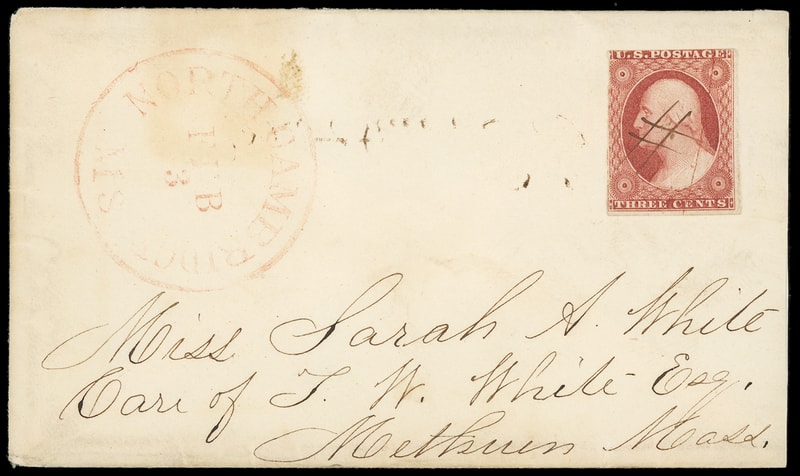 NORTH CAMBRIDGE MS
FEB
3
U.S. POSTAGE
THREE CENTS
Miss Sarah A. White
Care of T. W. White Esq.
Methuen Mass.